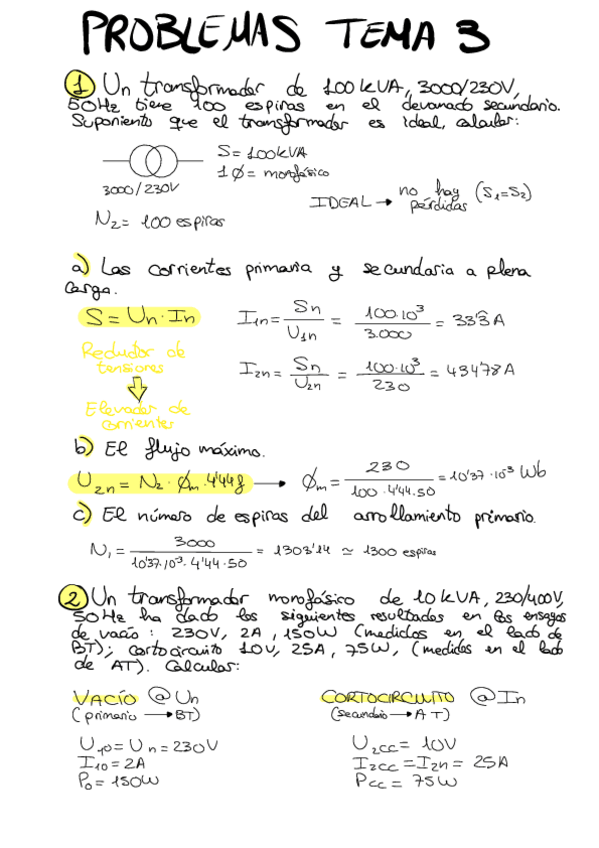 PROBLEMAS TEMA 3
1 Un transformador de 100 kVA, 3000/230V,
50Hz tiene 100 espiras en el devanado secundario.
Suponiento que el transformador es ideal, calcular:
S = 100kVA
1 Ø = monofásico
3000/230V
IDEAL → no hay pérdidas (S₁=S₂)
N₂ = 100 espiras
a) Las corrientes primaria y secundaria a plena
carga.
S = Un · In
I1n = Sn / U1n = 100·10³ / 3.000 = 33'3 A
Reductor de
tensiones
I2n = Sn / U2n = 100·10³ / 230 = 434'78 A
Elevador de
corrientes
b) El flujo máximo.
U2n = N₂ · Øm · 4'44 f → Øm = 230 / 100 · 4'44 · 50 = 10'37 · 10⁻³ Wb
c) El número de espiras del arrollamiento primario.
N₁ = 3000 / 10'37·10⁻³ · 4'44 · 50 = 1303'14 ≃ 1300 espiras
2 Un transformador monofásico de 10 kVA, 230/400V,
50Hz ha dado los siguientes resultados en los ensayos
de vacío: 230V, 2A, 150W (medidos en el lado de
BT); cortocircuito 10V, 25A, 75W, (medidos en el lado
de AT). Calcular:
VACÍO @ Un
(primario → BT)
CORTOCIRCUITO @ In
(secundario → AT)
U10 = Un = 230V
I10 = 2A
P0 = 150W
U2cc = 10V
I2cc = I2n = 25A
Pcc = 75W